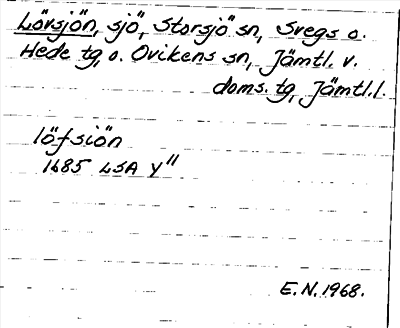 Lövsjön, sjö, Storsjö sn, Svegs o.
Hede tg, o. Ovikens sn, Jämtl. v.
doms. tg, Jämtl. l.
löfsiön
1685 LSA Y"
E.N. 1968.